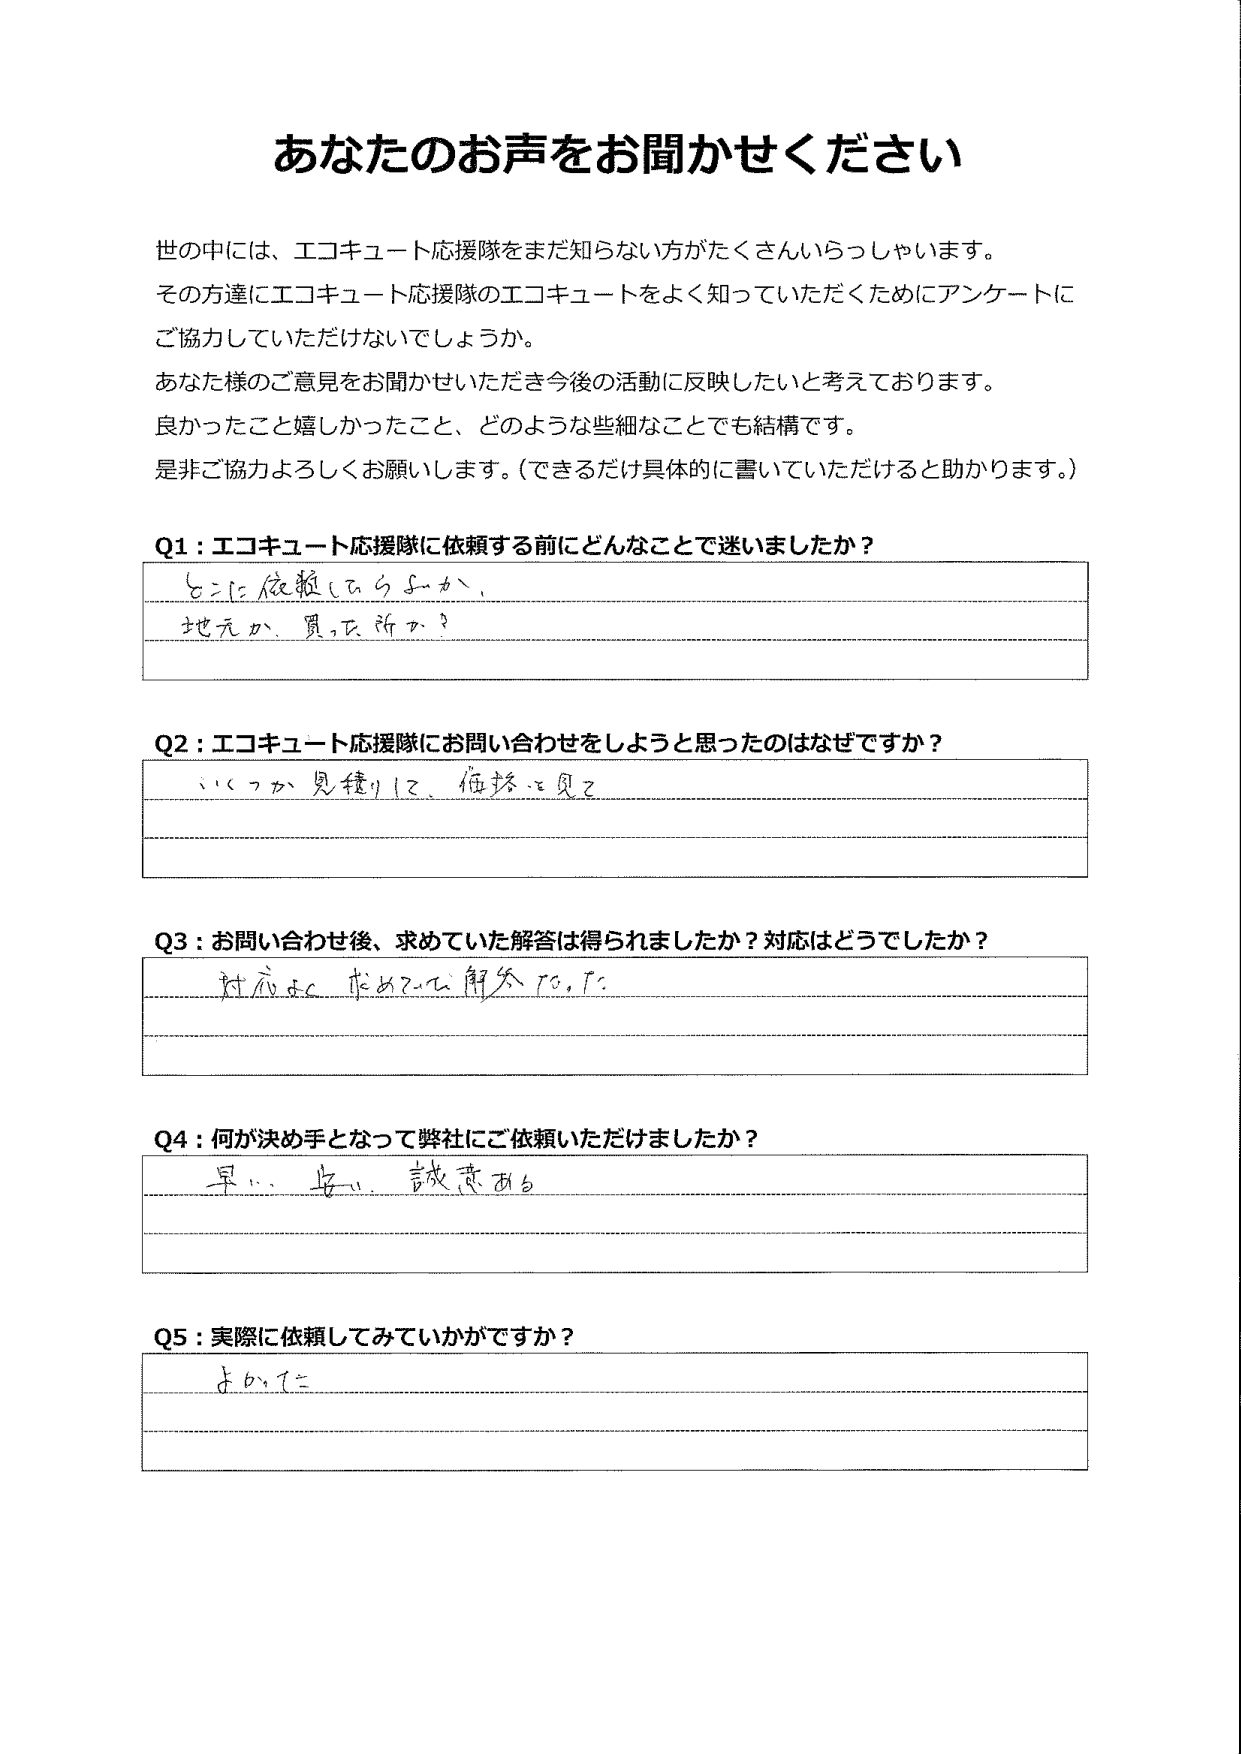 あなたのお声をお聞かせください
世の中には、エコキュート応援隊をまだ知らない方がたくさんいらっしゃいます。
その方達にエコキュート応援隊のエコキュートをよく知っていただくためにアンケートに
ご協力していただけないでしょうか。
あなた様のご意見をお聞かせいただき今後の活動に反映したいと考えております。
良かったこと嬉しかったこと、どのような些細なことでも結構です。
是非ご協力よろしくお願いします。（できるだけ具体的に書いていただけると助かります。）
Q1：エコキュート応援隊に依頼する前にどんなことで迷いましたか？
どこに依頼したらよいか、
地元か、買った所か？
Q2：エコキュート応援隊にお問い合わせをしようと思ったのはなぜですか？
いくつか見積りして、価格を見て
Q3：お問い合わせ後、求めていた解答は得られましたか？対応はどうでしたか？
対応よく 求めていた解答だった
Q4：何が決め手となって弊社にご依頼いただけましたか？
早い、安い、誠意ある
Q5：実際に依頼してみていかがですか？
よかった